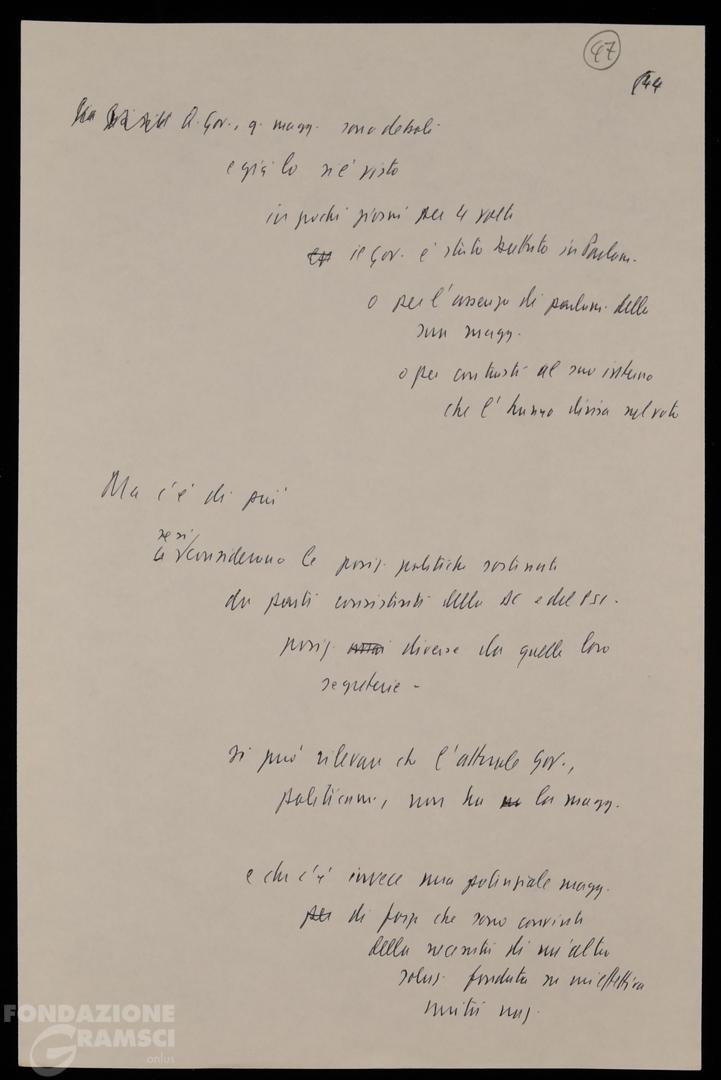 47
144
Q. Gov., q. magg. sono deboli
e già lo si è visto
in pochi giorni per 4 volte
il Gov. è stato battuto in Parlam.
o per l'assenza di parlam. della
sua magg.
o per contrasti al suo interno
che l'hanno divisa nel voto
Ma c'è di più
se si
considerano le posiz. politiche sostenute
da parti consistenti della DC e del PSI.
posiz. diverse da quelle loro
segreterie -
si può rilevare che l'attuale Gov.,
politicam., non ha la magg.
e che c'è invece una potenziale magg.
di forze che sono convinte
della necessità di un'altra
soluz. fondata su un'effettiva
unità naz.
FONDAZIONE
GRAMSCI
onlus